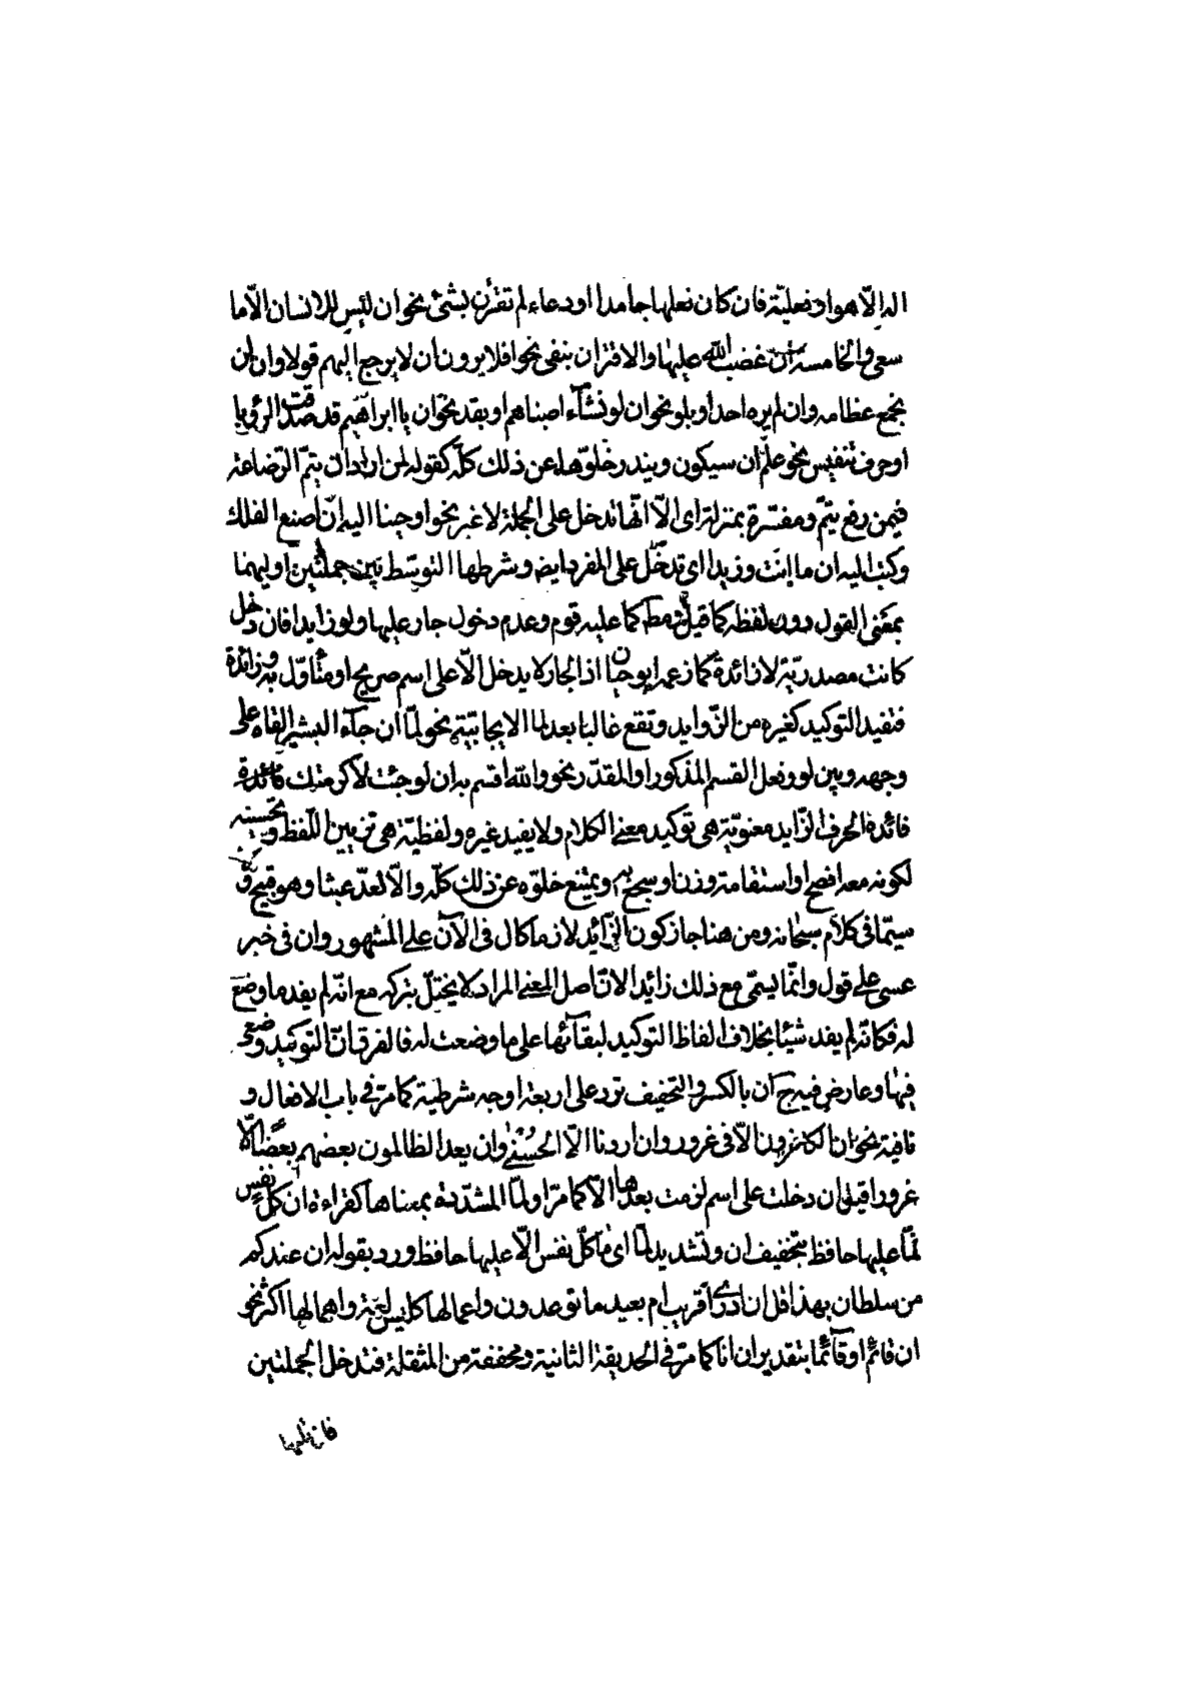 اله الّا هو او فعليّة فان كان فعلها جامدا او دعاء لم تقترن بشئ نحو ان ليس للانسان الّا ما
سعى والخامسة ان غضب الله عليها والا قترن بنفى نحو افلا يرون ان لا يرجع اليهم قولا وان لن
نجمع عظامه وان لم يره احد او بلو نحو ان لو نشآء اصبناهم او بقد نحو ان يا ابراهيم قد صدقت الرؤيا
او حرف تنفيس نحو علم ان سيكون ويندر خلوّها عن ذلك كلّه كقوله لمن اراد ان يتمّ الرّضاعة
فيمن رفع يتمّ ومفسّرة بمنزلة اى الّا انّها تدخل على الجملة لا غير نحو اوحينا اليه ان اصنع الفلك
وكتب اليه ان ما انت وزيدا اى تدخل على المفرد ايض وشرطها التوسّط بين جملتين اوليهما
بمعنى القول دون لفظه كما قيل مط كما عليه قوم وعدم دخول جار عليها ولو زايدا فان دخل
كانت مصدريّة لا زائدة كما زعمه ابوحيان اذ الجار لا يدخل الّا على اسم صريح او مأوّل به وزائدة
فتفيد التوكيد كغيره من الزّوايد وتقع غالبا بعد لما الايجابيّة نحو لمّا ان جآء البشير القاه على
وجهه وبين لو وفعل القسم المذكور او المقدّر نحو والله اقسم به ان لو جئت لاكرمتك فائدة
فائدة الحرف الزّايد معنويّة هى توكيد معنى الكلام ولا يفيد غيره ولفظيّة هى تزيين اللّفظ وتحسينه
لكونه معه افصح او استقامة وزن او سجع به ويمتنع خلوّه عن ذلك كلّه والّا لعدّ عبثا وهو قبيح
سيّما فى كلام سبحانه ومن هنا جاز كون الزّائد لازما كال فى الآن على المشهور وان فى خبر
عسى على قول وانّما يسمّى مع ذلك زائدا لانّ اصل المعنى المراد لا يختلّ بتركه مع انّه لم يفد ما وضع
له فكانّه لم يفد شيئا بخلاف الفاظ التوكيد لبقآئها على ما وضعت له فالفرق انّ التوكيد وضعى
فيها وعارض فيه ج ان بالكسر والتخفيف ترد على اربعة اوجه شرطية كما مرّ فى باب الافعال و
نافية نحو ان الكافرون الّا فى غرور وان اردنا الّا الحسنى وان يعد الظالمون بعضهم بعضا الّا
غرورا قيل وان دخلت على اسم لزمت بعدها الّا كما مرّ او لمّا المشدّدة بمعناها كقراءة ان كلّ نفس
لمّا عليها حافظ بتخفيف ان وتشديد لمّا اى ما كلّ نفس الّا عليها حافظ ورد بقوله ان عندكم
من سلطان بهذا قل ان ادرى اقريب ام بعيد ما توعدون واعمالها كليس لغية واهمالها اكثر نحو
ان قائم او قآئما بتقدير ان انا كما مرّ فى الحديقة الثانية ومخففة من المثقلة فتدخل الجملتين